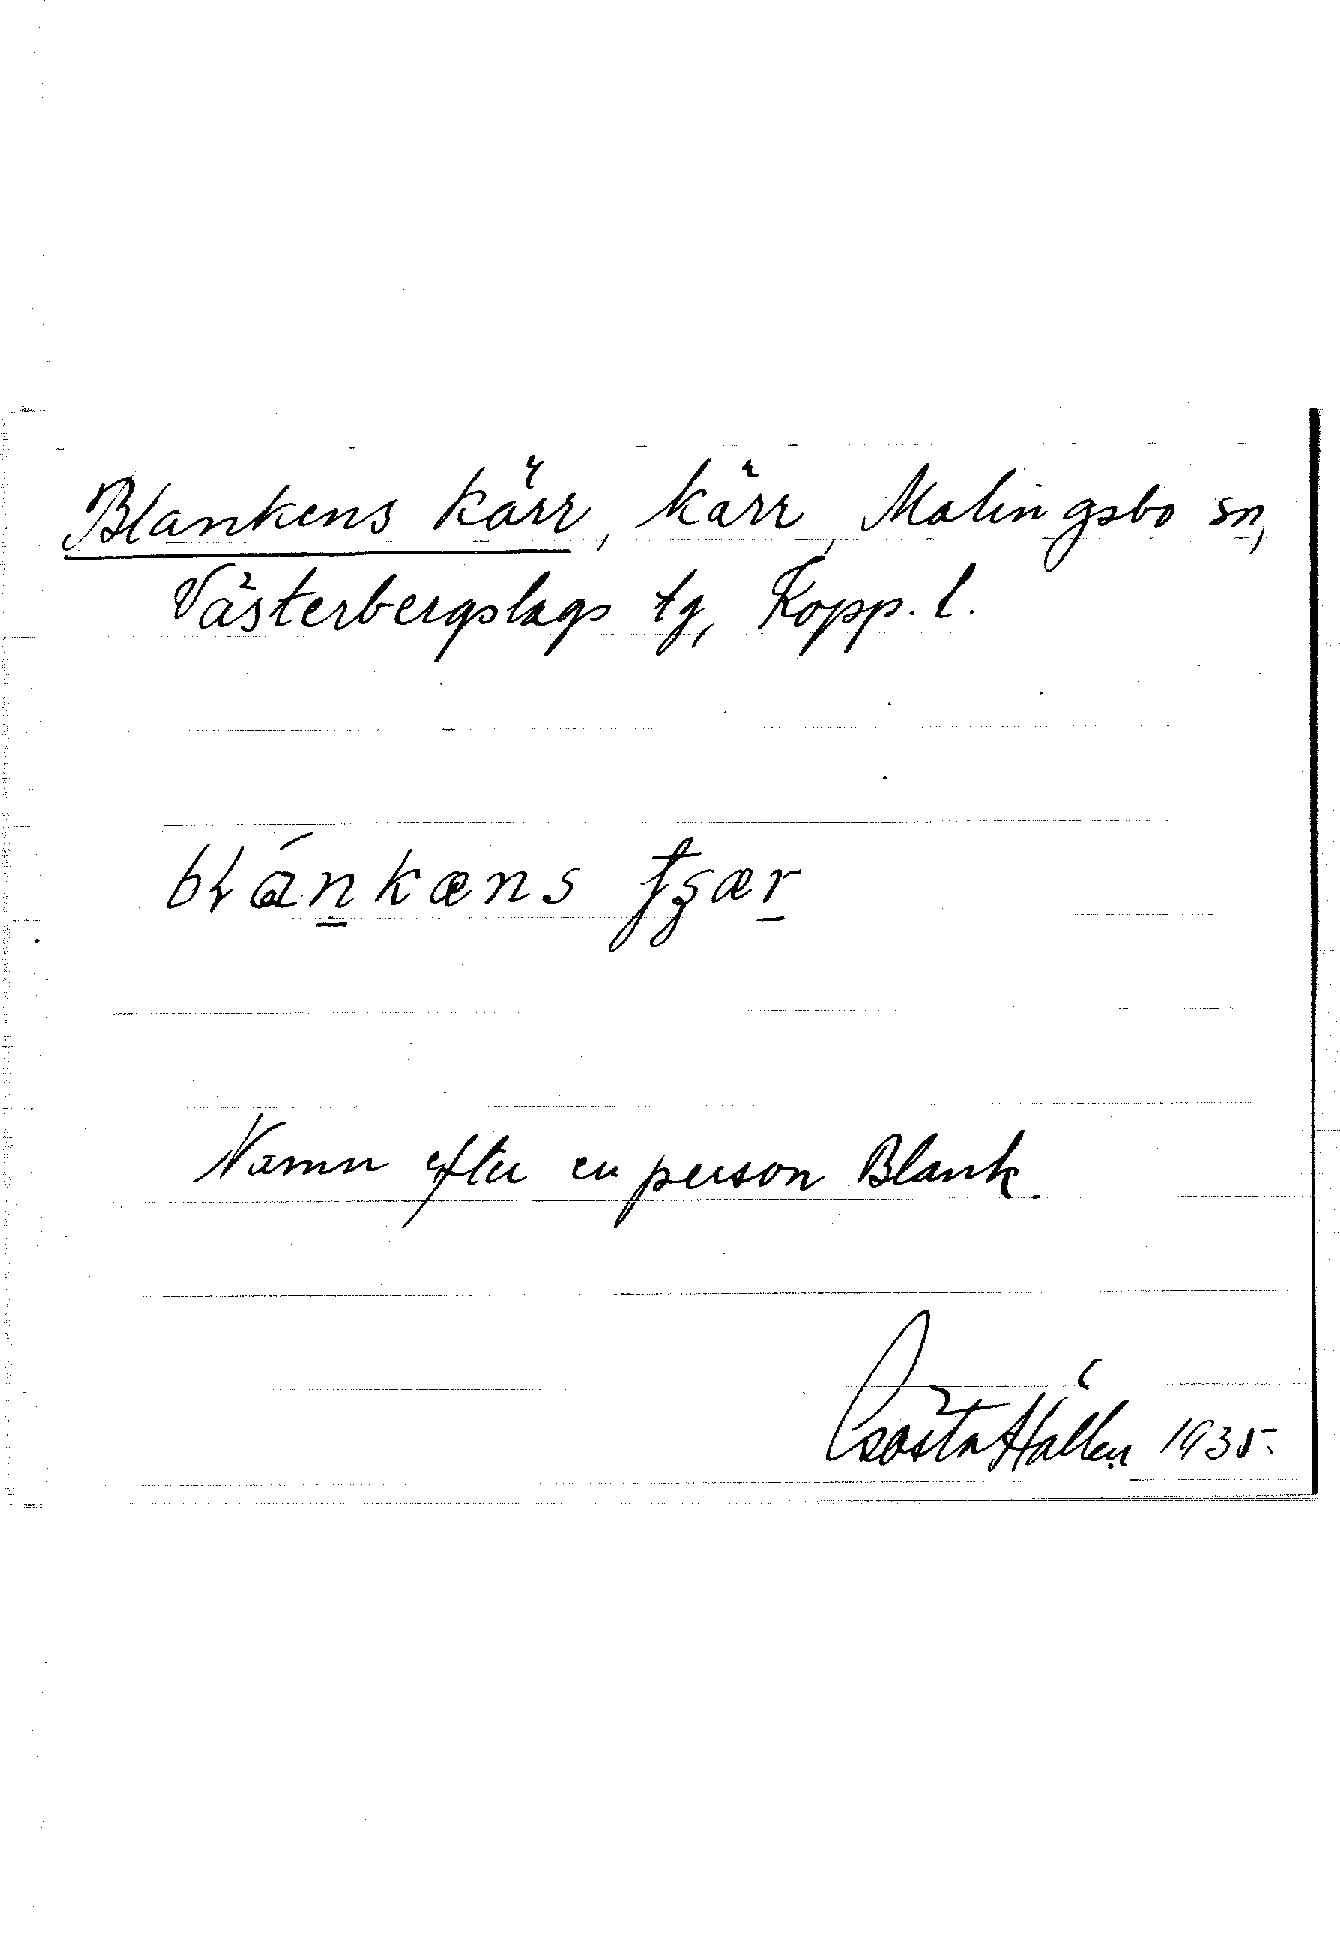 Blankens kärr, kärr, Malingsbo sn,
Västerbergslags tg, Kopp. l.
Namn efter en person Blank.
Gösta Hállen 1935.